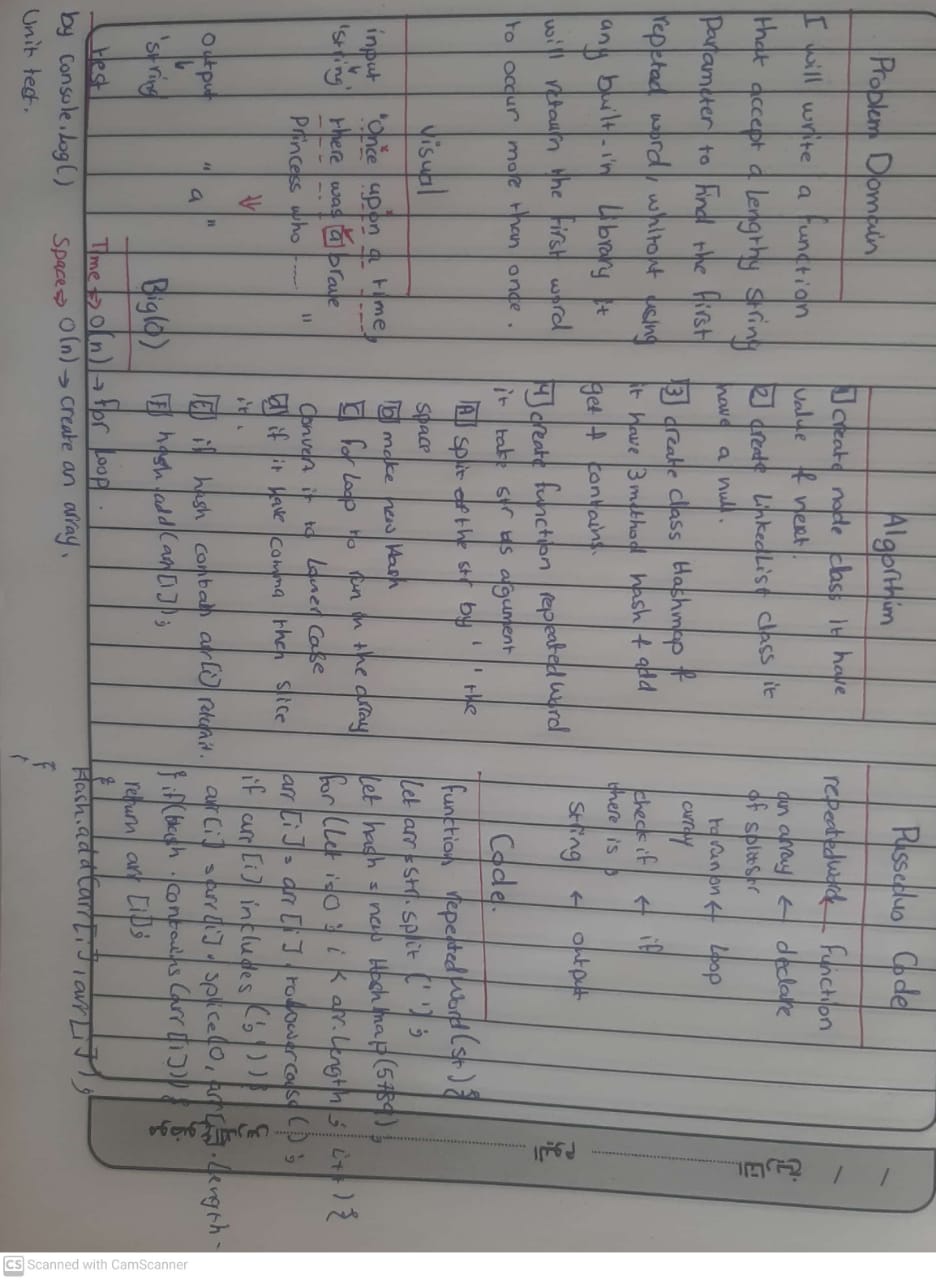 Problem Domain
I will write a function
that accept a Lengthy string
Parameter to find the first
repeted word, whitout using
any built-in Library it
will retaurn the first word
to occur more than once.
Visual
input
'string'
"Once upon a time,
there was a brave
Princess who ...... "
output
'string'
" a "
test
by console.log()
Unit test.
Big(O)
Time => O(n) → for loop.
Space => O(n) → create an array.
Algorithim
1 create node class it have
value & next.
2 create linkedList class it
have a null.
3 create class Hashmap &
it have 3 method hash & add
get & contains.
4 create function repeatedword
it take str as argument
A split the str by ' ' the
space
b make new Hash
C for loop to run in the array
Convert it to Lower Case
d if it have comma then slice
it.
E if hash contain arr[i] return it.
F hash.add(arr[i]);
Pusseduo Code
repeatedword ← function
an array ← declare
of splitstr
to run on ← Loop
array
check if ← if
there is ,
string ← output
Code.
function repeatedword(str){
Let arr = str.split(' ');
Let hash = new Hashmap(5789);
for (Let i=0; i < arr.length; i++){
arr[i] = arr[i].toLowercase();
if arr[i] includes (',')){
arr[i] = arr[i].splice(0, arr[i].length-
} if(hash.contains(arr[i])){
return arr[i];
}
Hash.add(arr[i], arr[i]);
}
CS Scanned with CamScanner